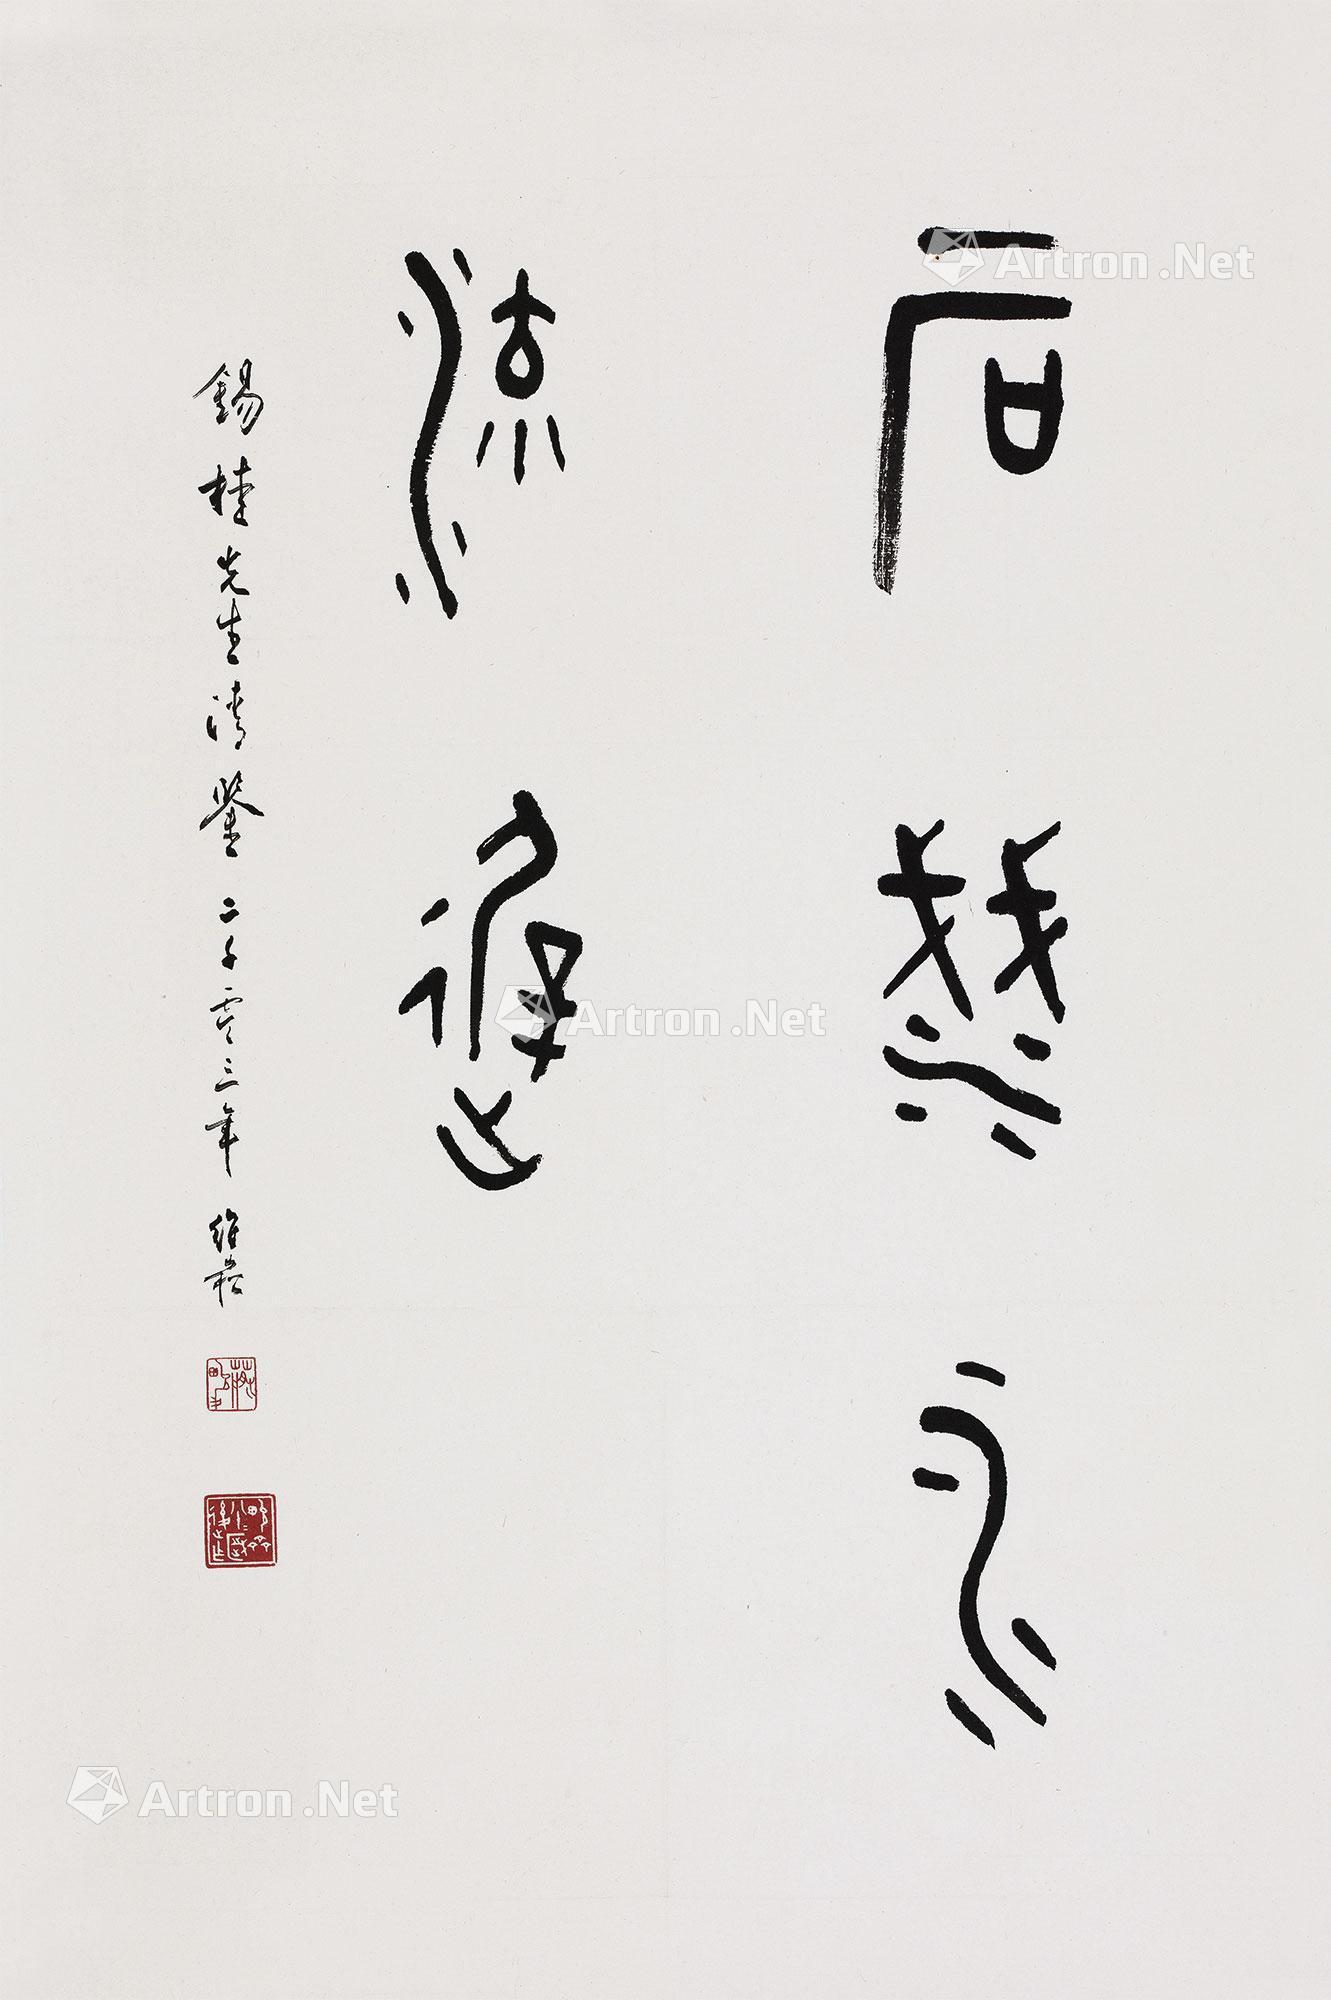 石淺水
流遲
錫桂先生清鑒 二千零三年 維崧
Artron.Net
Artron.Net
Artron.Net